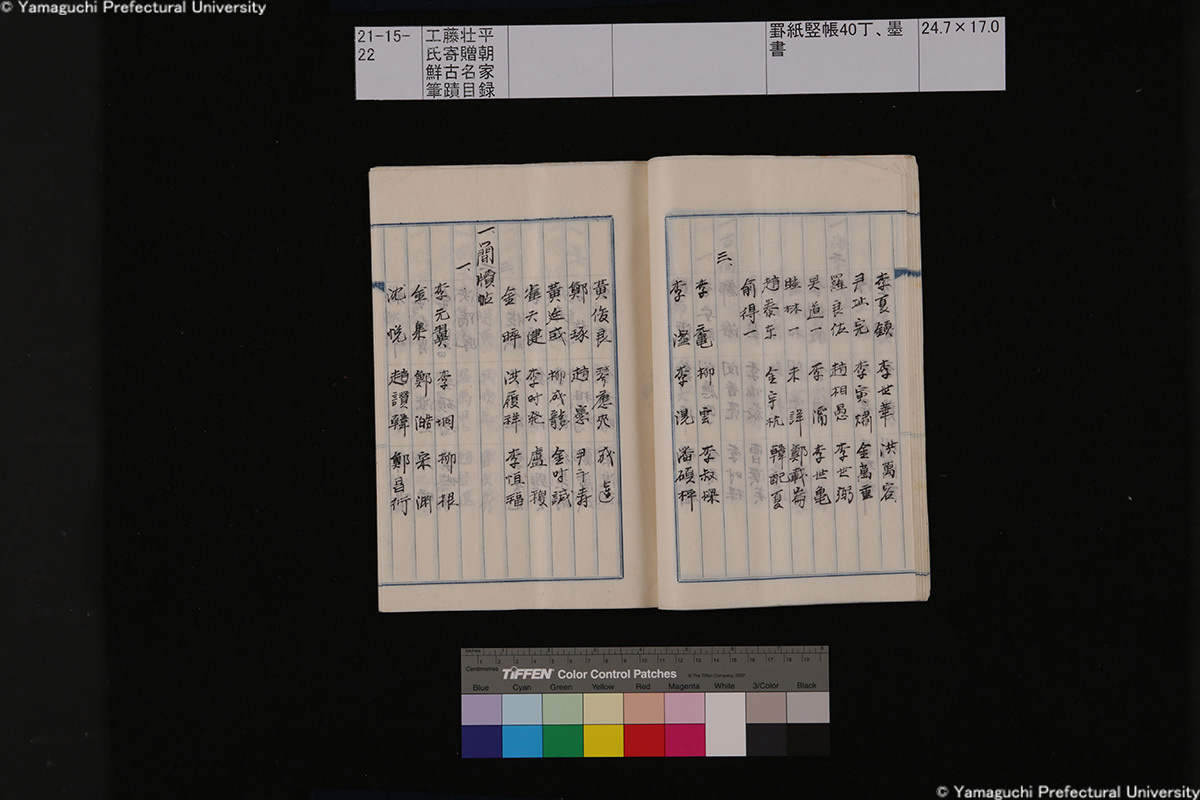 © Yamaguchi Prefectural University
21-15-
22
工藤壮平
氏寄贈朝
鮮古名家
筆蹟目録
罫紙竪帳40丁、墨
書
24.7×17.0
李夏鎮 李世華 洪萬容
尹址完 李寅燁 金萬重
羅良佐 趙相愚 李世弼
吴道一 李濡 李世龜
睦林一 未詳 鄭載崙
趙泰东 金宇杭 韓配夏
俞得一
三、
李黿 柳雲 李叔樑
李滉 潘碩枰
黄俊良 成遠
鄭琢 趙憲 尹千寿
黄廷彧 柳成龍 金時諴
崔天健 李时發 盧稷
金晬 洪履祥 李恒福
一、簡牘帖
一、
李元翼 李垌 柳根
金集 鄭澔 宋渊
沈悦 趙讃韓 鄭昌衍
Inches
Centimetres
TIFFEN Color Control Patches
© The Tiffen Company, 2007
Blue Cyan Green Yellow Red Magenta White 3/Color Black
© Yamaguchi Prefectural University